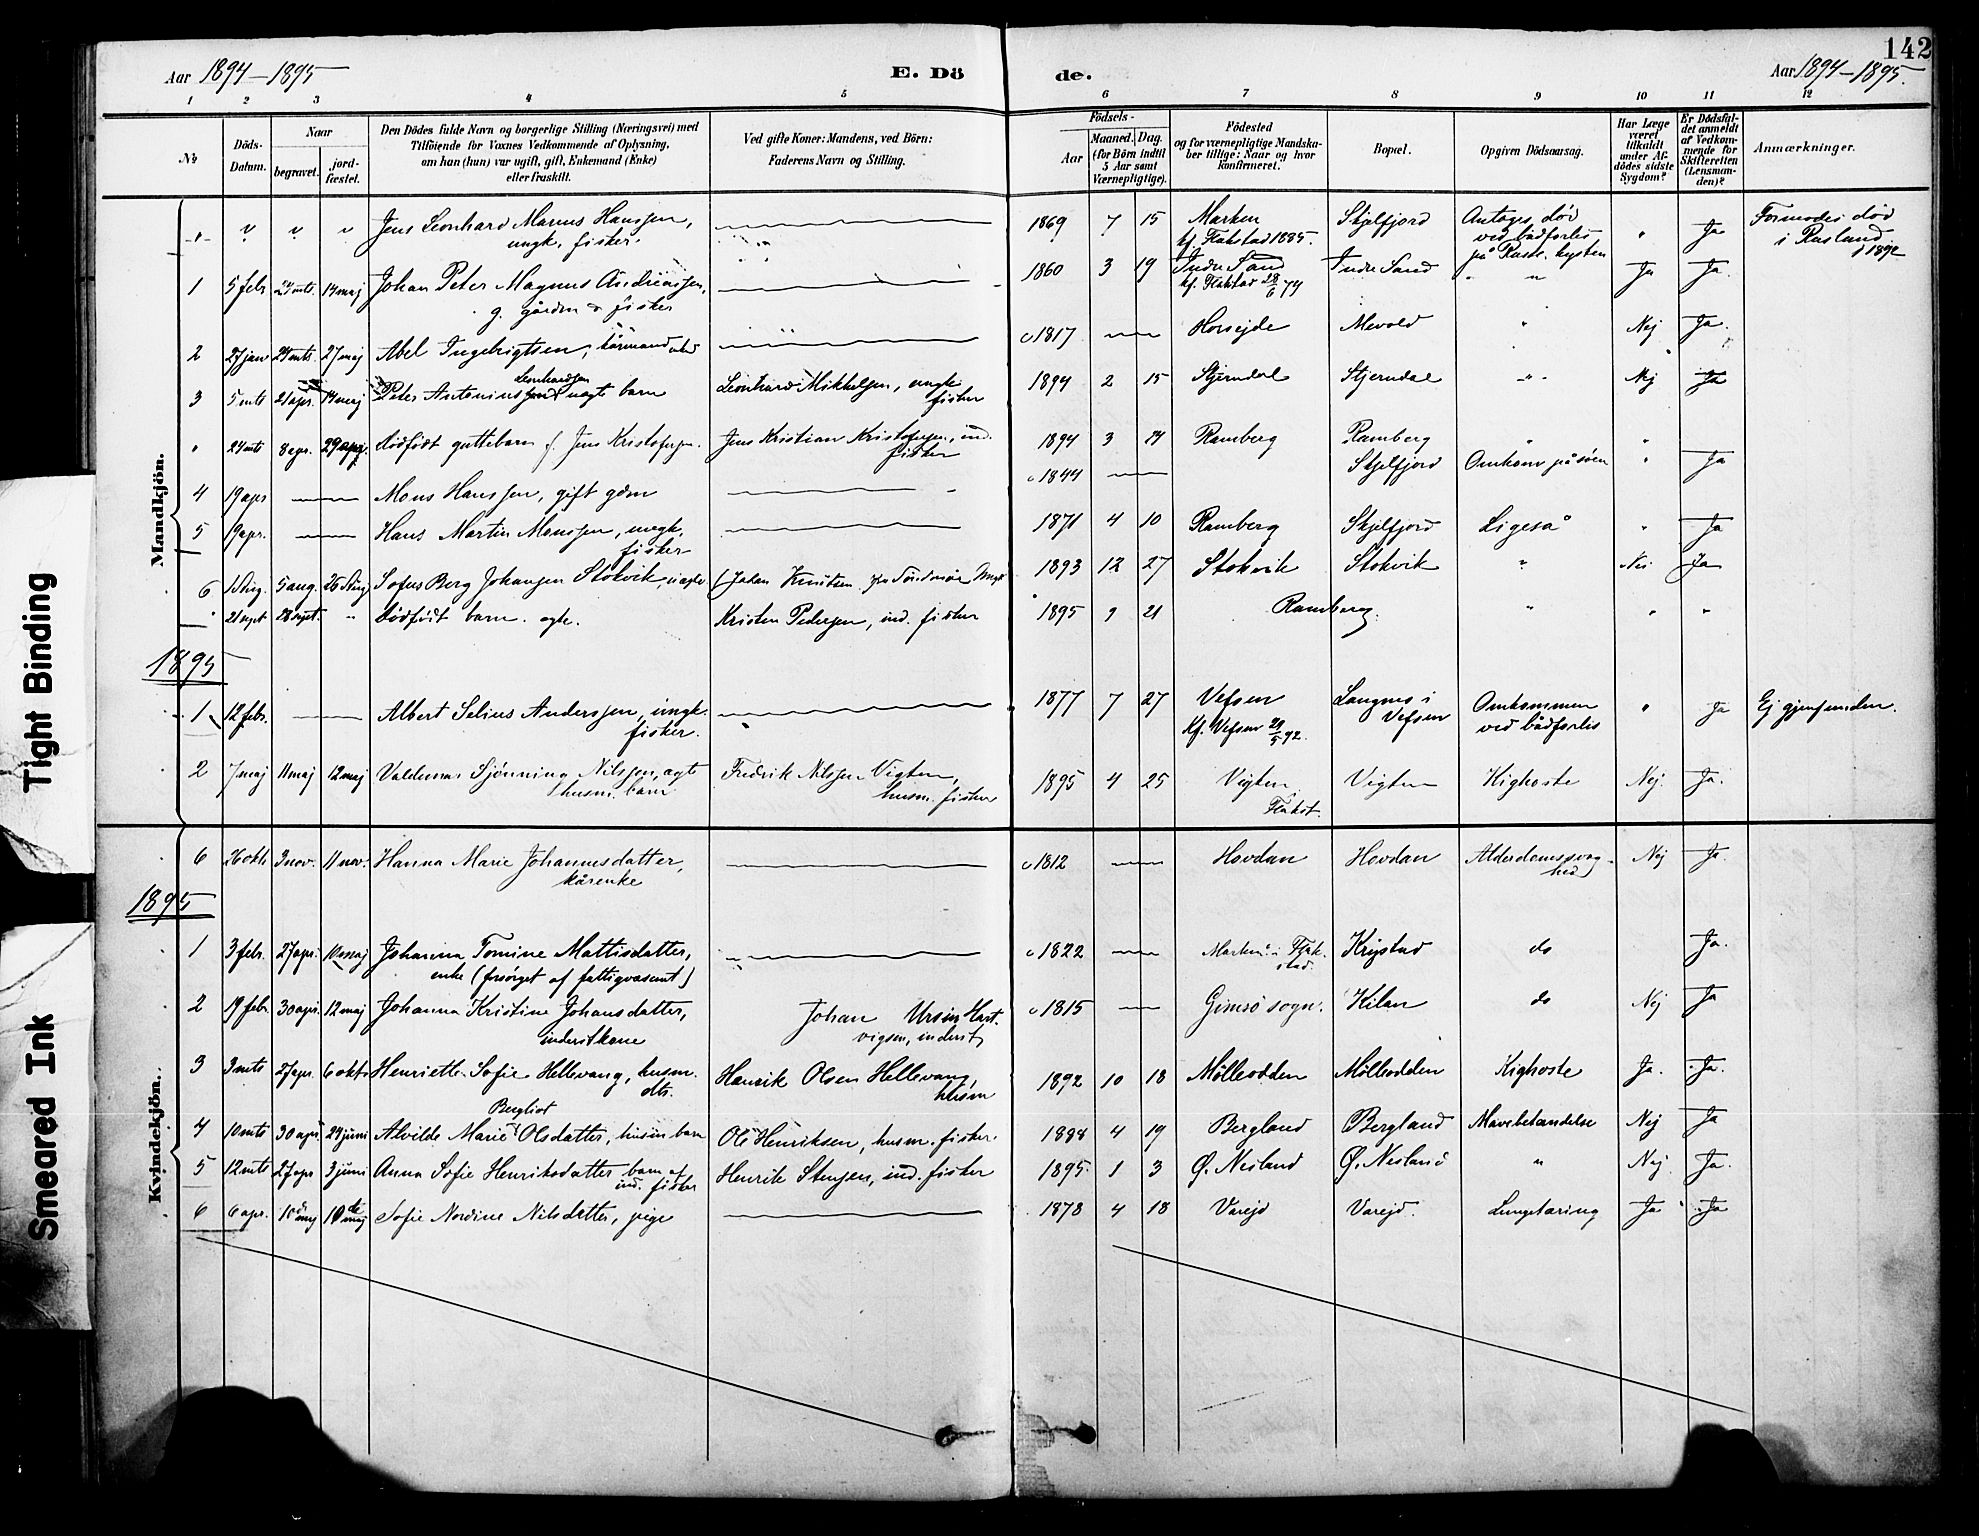 142
Aar 1894-1895
E. Dö
de.
Aar 1894-1895.
1 2 3 4 5 6 7 8 9 10 11 12
No
Döds-Datum.
Naar
begravet.
jord-fæstet.
Den Dödes fulde Navn og borgerlige Stilling (Næringsvei) med
Tilföiende for Voxnes Vedkommende af Oplysning,
om han (hun) var ugift, gift, Enkemand (Enke)
eller fraskilt.
Ved gifte Koner: Mandens, ved Börn:
Faderens Navn og Stilling.
Födsels-
Aar
Maaned. Dag.
(for Börn indtil
5 Aar samt
Værnepligtige).
Födested
og for værnepligtige Mandska-
ber tillige: Naar og hvor
konfirmeret.
Bopæl.
Opgiven Dödsaarsag.
Har Læge
været
tilkaldt
under Af-
dödes sidste
Sygdom?
Er Dödsfal-
det anmeldt
af Vedkom-
mende for
Skifteretten
(Lensman-
den)?
Anmærkninger.
Mandkjön.
" " " " Jens Leonhard Marius Hanssen, 1869 7 15 Marken Skjelfjord Antages død " Ja Formodes død
ungk, fisker. kf. Flakstad 1885. ved bådforlis i Rusland
på Russ. kysten 1892
1 5 febr 24 mts 14 maj Johan Peter Magnus Andreassen, 1860 3 19 Indre Sand Indre Sand " " Ja Ja.
g. gårdm & fisker kf. Flakstad 28/6 74
2 27 jan 24 mts. 27 maj Abel Ingebrigtsen, kårmand c 1817 Horsejde Mevold " Nej Ja.
Leonhardsen
3 5 mts 21 apr. 14 maj Peter Antonius uægte barn Leonhard Mikkelsen, ungk. 1894 2 15 Stjerndal Stjerndal " Nej Ja
fisker
" 24 mts 8 apr. 29 apr. dødfødt guttebarn f. Jens Kristofersen. Jens Kristian Kristofersen, ind. 1894 3 14 Ramberg Ramberg " "
fisker
4 19 apr Mons Hanssen, gift gdm c 1844 Skjelfjord Omkom på søen " Ja
5 19 apr. Hans Martin Monssen, ungk. 1871 4 10 Ramberg Skjelfjord Ligeså " Ja
fisker
6 1 Aug. 5 aug. 26 Aug Sofus Berg Johansen Stokvik, uægte (Johan Knutsen fra Søndmøre Ungk 1893 12 27 Stokvik Stokvik " Nei Ja
" 21 sept 28 sept. " dødfødt barn. ægte. Kristen Pedersen, ind. fisker 1895 9 21 Ramberg. " " "
1895
1 12 febr. Albert Selius Anderssen, ungk. 1877 7 27 Vefsen Langnes i Omkommen " Ja Ej gjenfunden.
fisker. Kf. Vefsen 29/5 92. Vefsen ved bådforlis
2 7 maj 11 maj 12 maj Valdemar Sjønning Nilssen, ægte Fredrik Nilssen Vigten, 1895 4 25 Vigten Vigten Kighoste Nej. Ja.
husm. barn husm. fisker Flakst.
Kvindekjön.
6 26 okt 3 nov. 11 nov. Hanna Marie Johannesdatter, c 1812 Hovdan Hovdan Alderdomssvag- Nej Ja.
kårenke hed
1895
1 3 febr. 27 apr. 10 maj Johanna Tomine Mattisdatter, c 1822 Marken i Flak- Krystad do Ja.
enke (forsørget af fattigvæsenet) stad.
2 19 febr. 30 apr. 12 maj Johanna Kristine Johansdatter, Johan Ursin Hart- c 1815 Gimsø sogn. Kilan do Nej Ja
inderstkone vigsen, inderst
3 3 mts 27 apr. 6 okt Henriette Sofie Hellevang, husm. Henrik Olsen Hellevang, 1892 10 18 Mølleodden Mølleodden Kighoste Ja. Ja.
dtr. husm
Bergliot
4 10 mts 30 apr 24 juni Alvilde Marie Olsdatter, husm. barn Ole Henriksen, husm. fisker. 1894 4 19 Bergland Bergland Mavebetændelse Nej Ja
5 12 mts 27 apr 3 juni Anna Sofie Henriksdatter barn af Henrik Stensen, ind. fisker 1895. 1 3 Ø. Nesland Ø. Nesland " Nej. Ja.
ind. fisker
6 6 apr. 10 maj 10 maj Sofie Nordine Nilsdatter, pige 1878 4 18 Varejd Varejd. Lungetæring Ja Ja
Tight Binding
Smeared Ink